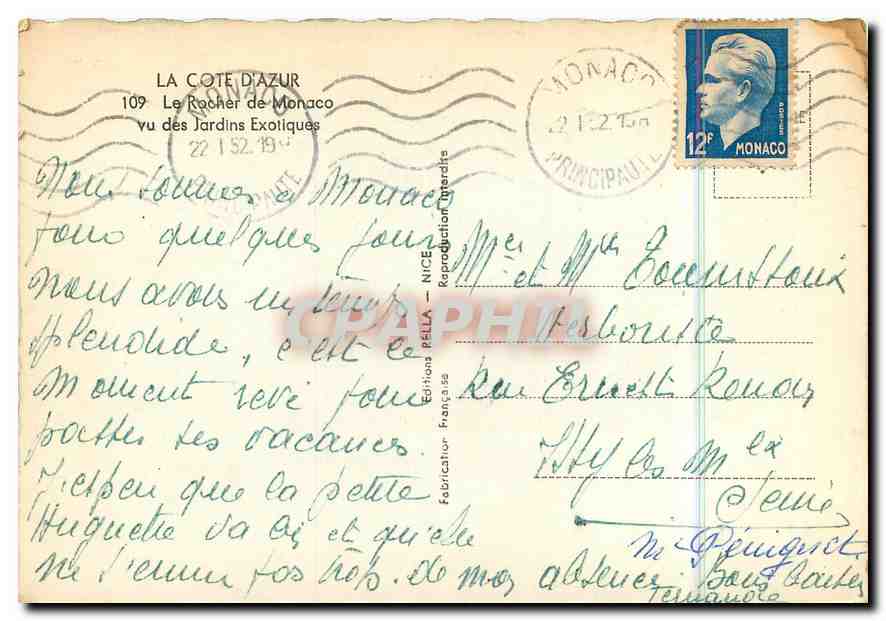 LA COTE D'AZUR
109 Le Rocher de Monaco
vu des Jardins Exotiques
MONACO
22 1 52 19
PRINCIPAUTE
MONACO
22 1 52 19
PRINCIPAUTE
POSTES
12F MONACO
Nous sommes à Monaco
pour quelques jours
Nous avons un temps
splendide, c'est le
Moment rêvé pour
passer ses vacances.
J'espère que la petite
Huguette va bien et qu'elle
ne s'ennuie pas trop. de mon absence Bons baisers
Fernande
Editions RELLA — NICE
Fabrication Française Reproduction interdite
Mr et Mme
Herboriste
Rue Ernest Renan
Issy les Mlx
Seine
CPAPHIL